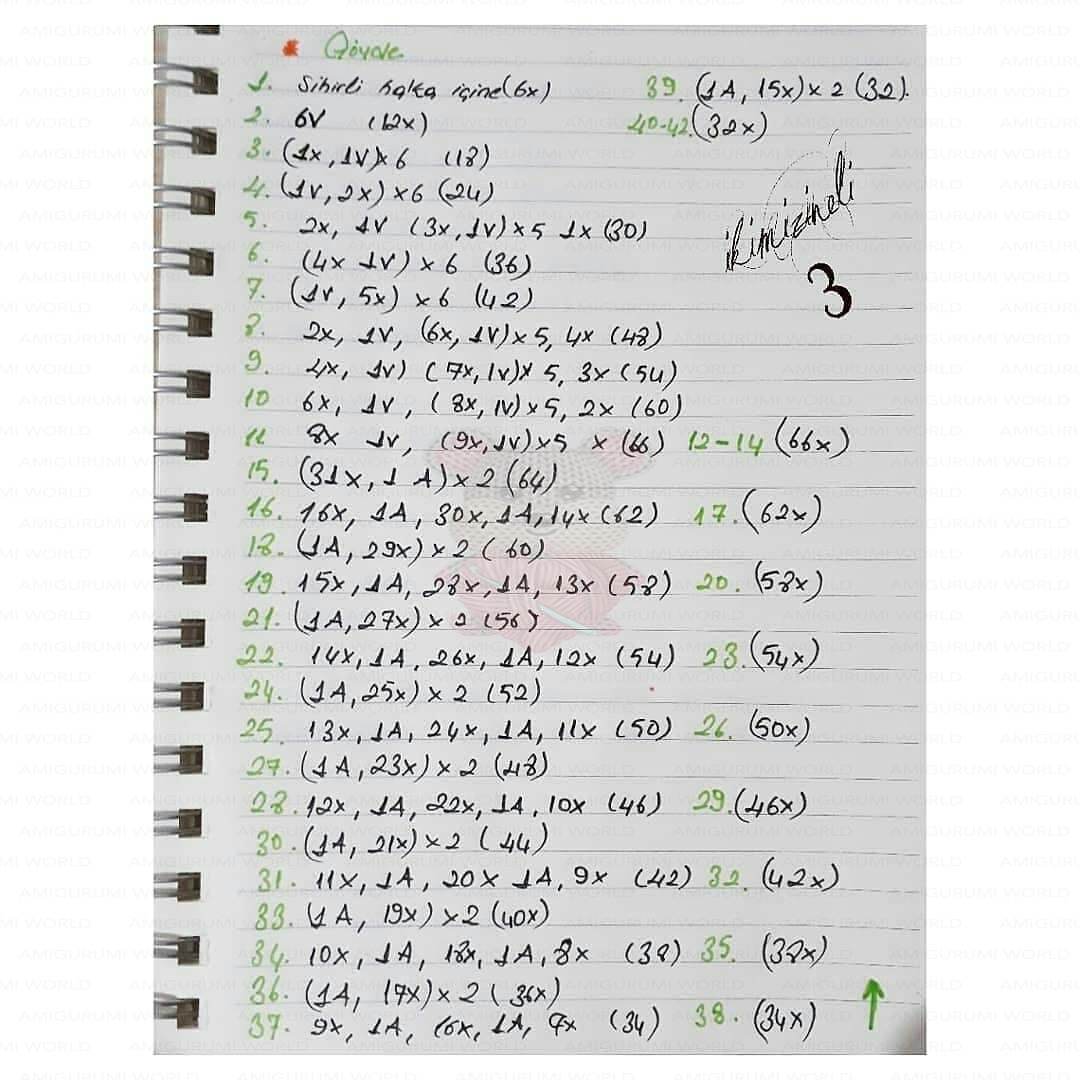 * Gövde
1. Sihirli halka içine (6x)
2. 6V (12x)
3. (1x, 1V) x 6 (18)
4. (1V, 2x) x 6 (24)
5. 2x, 1V (3x, 1V) x 5 1x (30)
6. (4x 1V) x 6 (36)
7. (1V, 5x) x 6 (42)
8. 2x, 1V, (6x, 1V) x 5, 4x (48)
9. 4x, 1V) (7x, 1V) x 5, 3x (54)
10 6x, 1V, (8x, 1V) x 5, 2x (60)
11 8x 1V, (9x, 1V) x 5 x (66) 12-14 (66x)
15. (31x, 1 A) x 2 (64)
16. 16x, 1A, 30x, 1A, 14x (62) 17. (62x)
18. (1A, 29x) x 2 (60)
19. 15x, 1A, 28x, 1A, 13x (58) 20. (58x)
21. (1A, 27x) x 2 (56)
22. 14x, 1A, 26x, 1A, 12x (54) 23. (54x)
24. (1A, 25x) x 2 (52)
25. 13x, 1A, 24x, 1A, 11x (50) 26. (50x)
27. (1A, 23x) x 2 (48)
28. 12x, 1A, 22x, 1A, 10x (46) 29. (46x)
30. (1A, 21x) x 2 (44)
31. 11x, 1A, 20x 1A, 9x (42) 32. (42x)
33. (1A, 19x) x 2 (40x)
34. 10x, 1A, 18x, 1A, 8x (38) 35. (38x)
36. (1A, 17x) x 2 (36x)
37. 9x, 1A, 16x, 1A, 7x (34) 38. (34x)
39. (1A, 15x) x 2 (32).
40-42. (32x)
3
AMIGURUMI WORLD